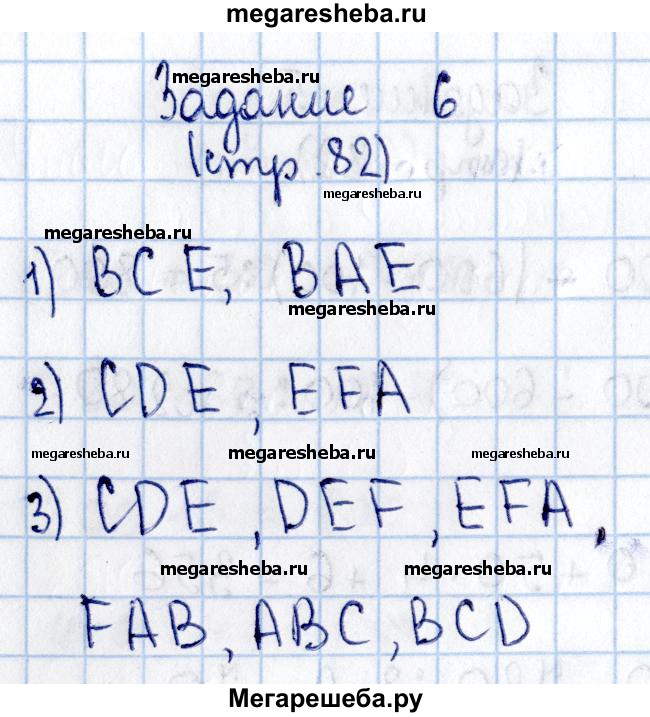 megaresheba.ru
megaresheba.ru
Задание 6
(стр. 82)
megaresheba.ru
megaresheba.ru
1) BCE, BAE
megaresheba.ru
2) CDE, EFA
megaresheba.ru megaresheba.ru megaresheba.ru
3) CDE, DEF, EFA,
megaresheba.ru megaresheba.ru
FAB, ABC, BCD
Мегарешеба.ру